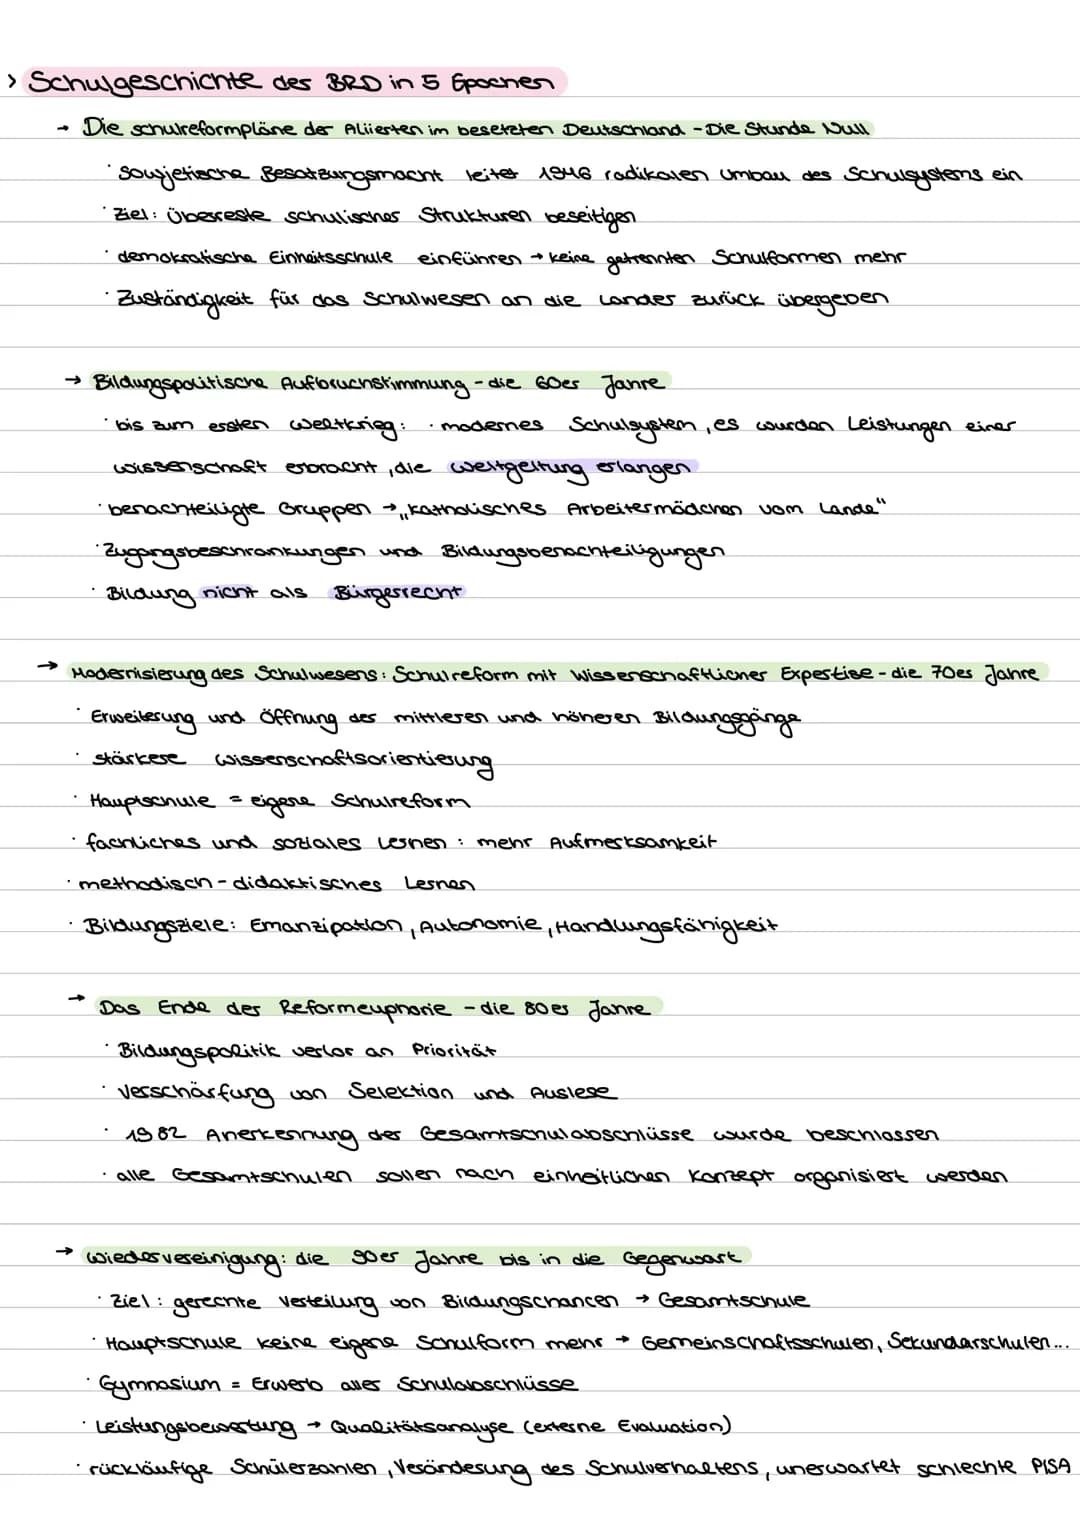 > Schulgeschichte der BRD in 5 Epochen
→ Die Schulreformpläne der Alliierten im besetzten Deutschland - Die Stunde Null
· Sowjetische Besatzungsmacht leitet 1946 radikalen Umbau des Schulsystems ein
· Ziel: Übereste schulischer Strukturen beseitigen
· demokratische Einheitsschule einführen → keine getrennten Schulformen mehr
· Zuständigkeit für das Schulwesen an die Länder zurück übergeben
→ Bildungspolitische Aufbruchstimmung - die 60er Jahre
· bis zum ersten Weltkrieg: · modernes Schulsystem, es wurden Leistungen einer
Wissenschaft erbracht, die Weltgeltung erlangen
· benachteiligte Gruppen → „katholisches Arbeitermädchen vom Lande"
· Zugangsbeschränkungen und Bildungsbenachteiligungen
· Bildung nicht als Bürgerrecht
→ Modernisierung des Schulwesens: Schulreform mit wissenschaftlicher Expertise - die 70er Jahre
· Erweiterung und Öffnung der mittleren und höheren Bildungsgänge
· stärkere Wissenschaftsorientierung
· Hauptschule = eigene Schulreform
· fachliches und soziales Lernen : mehr Aufmerksamkeit
· methodisch - didaktisches Lernen
· Bildungsziele: Emanzipation, Autonomie, Handlungsfähigkeit
→ Das Ende der Reformeuphorie - die 80er Jahre
· Bildungspolitik verlor an Priorität
· Verschärfung von Selektion und Auslese
· 1982 Anerkennung der Gesamtschulabschlüsse wurde beschlossen
· alle Gesamtschulen sollen nach einheitlichen Konzept organisiert werden
→ Wiedervereinigung: die 90er Jahre bis in die Gegenwart
· Ziel: gerechte Verteilung von Bildungschancen → Gesamtschule
· Hauptschule keine eigene Schulform mehr → Gemeinschaftsschulen, Sekundarschulen...
· Gymnasium = Erwerb aller Schulabschlüsse
· Leistungsbewertung → Qualitätsanalyse (externe Evaluation)
· rückläufige Schülerzahlen, Veränderung des Schulverhaltens, unerwartet schlechte PISA